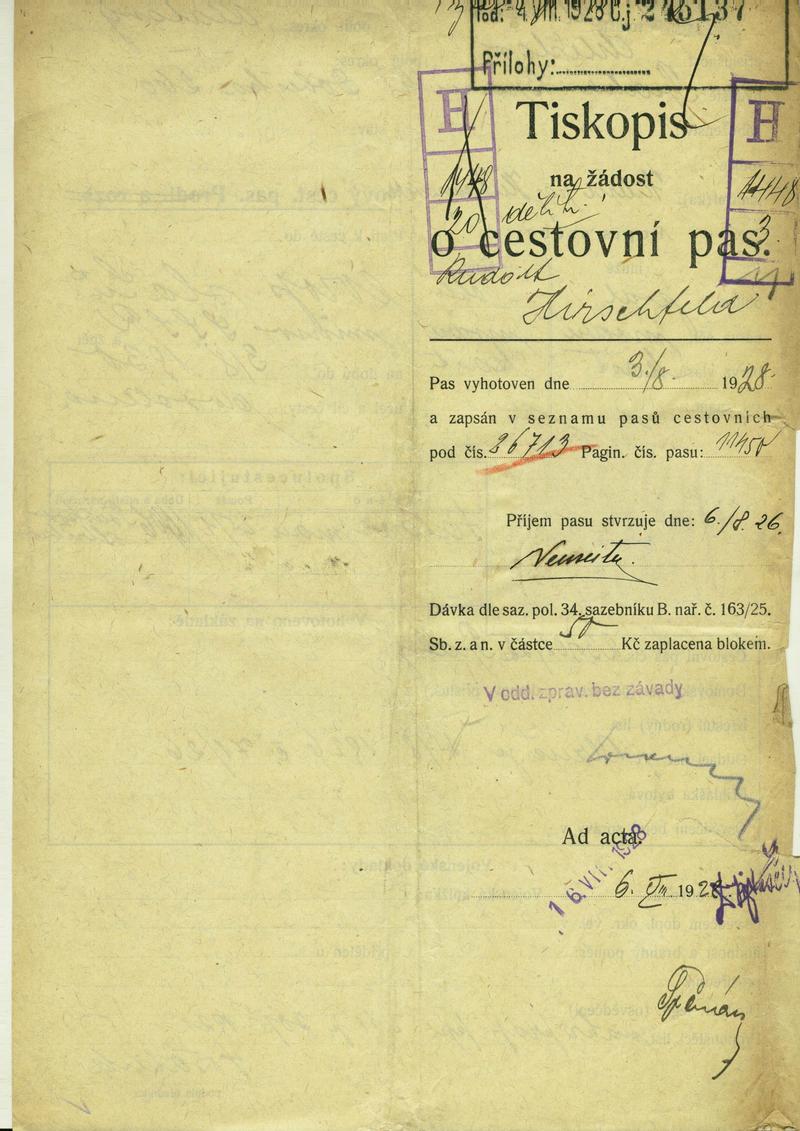 Dod: 4. VIII. 1928 Č.j. 245137
Přílohy:
H H
Tiskopis
na žádost
1448 1448
20 dětí 3
o cestovní pas.
Rudolf
Hirschfeld
Pas vyhotoven dne 3./8. 1928.
a zapsán v seznamu pasů cestovních
pod čís. 26713 Pagin. čís. pasu: 11450
Příjem pasu stvrzuje dne: 6./8. 26.
Dávka dle saz. pol. 34. sazebníku B. nař. č. 163/25.
Sb. z. a n. v částce 50 Kč zaplacena blokem.
V odd. zprav. bez závady
Ad acta.
6. VIII. 1928
16. VII. 1928